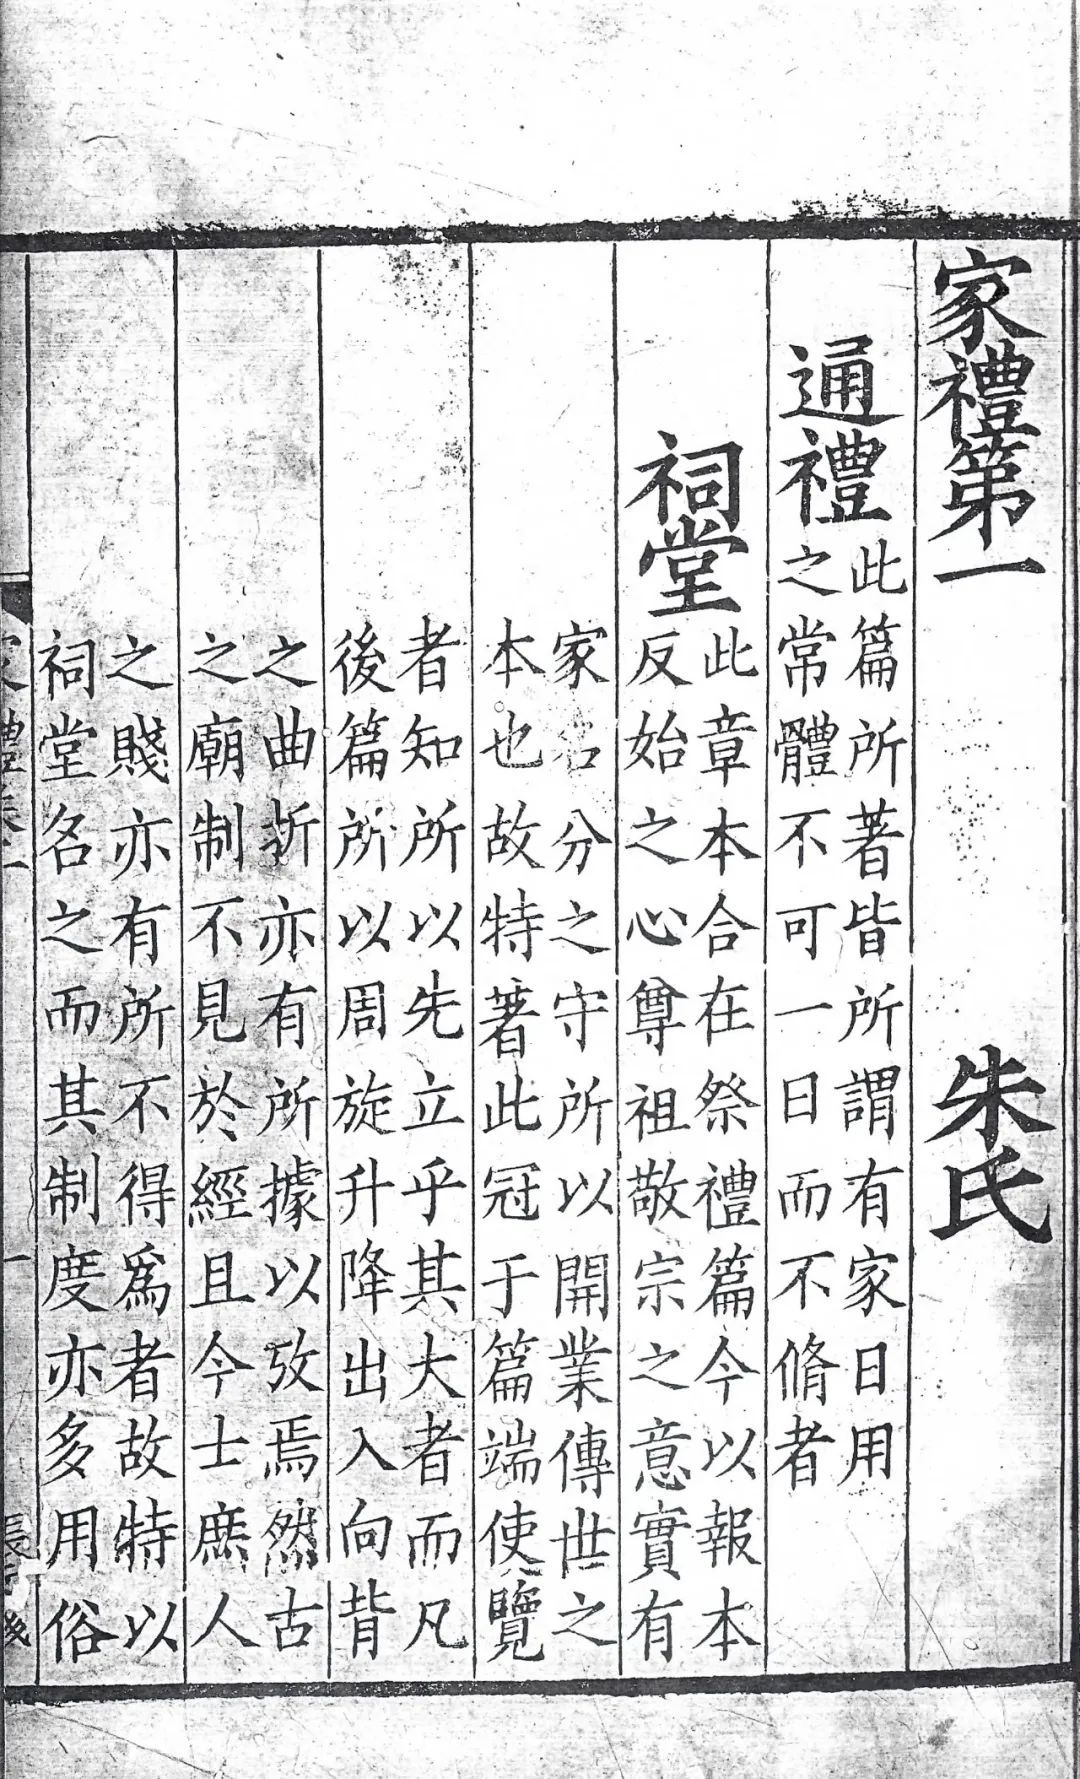 家禮第一 朱氏
通禮 此篇所著皆所謂有家日用
之常體不可一日而不脩者
祠堂 此章本合在祭禮篇今以報本
反始之心尊祖敬宗之意實有
家名分之守所以開業傳世之
本也故特著此冠于篇端使覽
者知所以先立乎其大者而凡
後篇所以周旋升降出入向背
之曲折亦有所據以攷焉然古
之廟制不見於經且今士庶人
之賤亦有所不得爲者故特以
祠堂名之而其制度亦多用俗